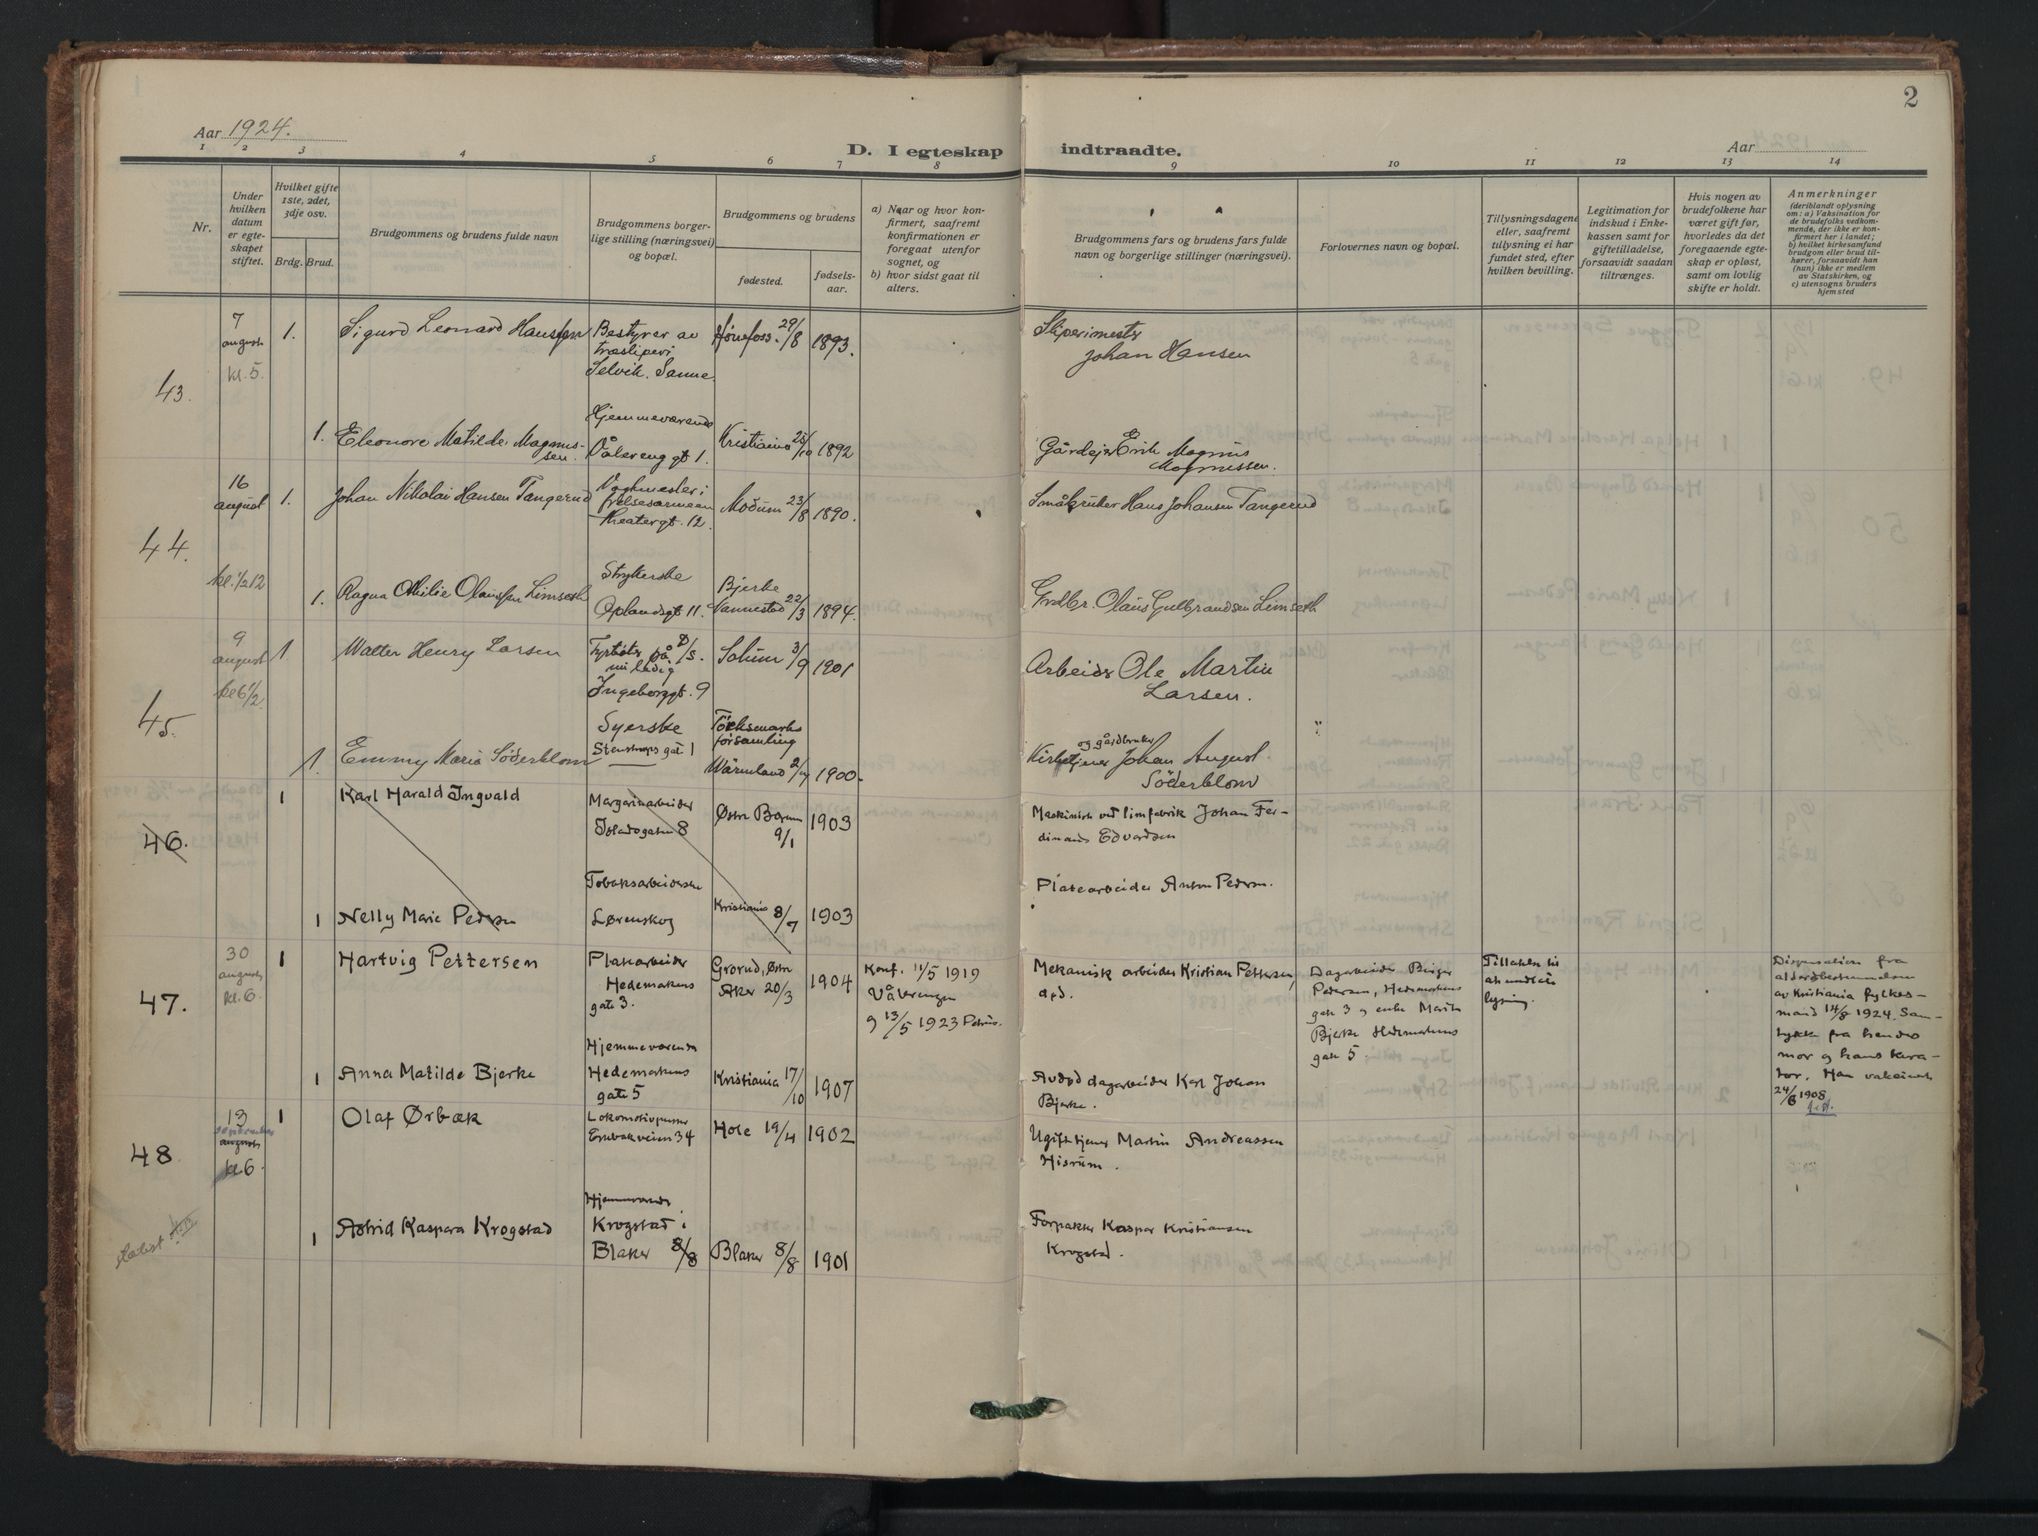 2
Aar 1924.
D. I egteskap indtraadte.
Aar
1 2 3 4 5 6 7 8 9 10 11 12 13 14
Nr.
Under hvilken datum er egteskapet stiftet.
Hvilket gifte 1ste, 2det, 3dje osv.
Brdg. Brud.
Brudgommens og brudens fulde navn
Brudgommens borgerlige stilling (næringsvei) og bopæl.
Brudgommens og brudens
fødested.
fødselsaar.
a) Naar og hvor konfirmert, saafremt konfirmationen er foregaat utenfor sognet, og
b) hvor sidst gaat til alters.
Brudgommens fars og brudens fars fulde navn og borgerlige stillinger (næringsvei).
Forlovernes navn og bopæl.
Tillysningsdagene eller, saafremt tillysning ei har fundet sted, efter hvilken bevilling.
Legitimation for indskud i Enkekassen samt for giftetilladelse, forsaavidt saadan tiltrænges.
Hvis nogen av brudefolkene har været gift før, hvorledes da det foregaaende egteskap er opløst, samt om lovlig skifte er holdt.
Anmerkninger
(deriblandt oplysning om: a) Vaksination for de brudefolks vedkommende, der ikke er konfirmert her i landet; b) hvilket kirkesamfund brudgom eller brud tilhører, forsaavidt han (hun) ikke er medlem av Statskirken, og c) utensogns bruders hjemsted
43.
7 august kl. 5.
1. Sigurd Leonard Hanssen
Bestyrer av træsliperi. Selvik. Sanne.
Hønefoss. 29/8 1893.
Sliperimester Johan Hansen
1. Eleonore Matilde Magnussen.
Hjemmeværende Vålereng gt 1.
Kristiania 25/10 1892
Gårdejer Erik Magnus Magnussen.
44.
16 august kl. 1/2 12
1. Johan Nikolai Hansen Tangerud
Vaktmester i frelsesarmeen Theatergt. 12.
Modum 23/8 1890.
Småbruker Hans Johansen Tangerud
1. Ragna Othilie Olaussen Limseth
Strykerske Oplandsgt 11.
Bjerke Nannestad 22/3 1894.
Grdbr. Olaus Gulbrandsen Limseth
45.
9 august kl 6 1/2
1 Walter Henry Larsen
Fyrbøter på D/S. nu ledig Ingeborggt. 9
Solum 3/9 1901
Arbeider Ole Martin Larsen.
1. Emmy Maria Söderblom
Syerske Stenstrups gat 1
Töcksmarks församling Wärmland 1900.
Kirketjener og gårdbruker Johan August Söderblom
46.
1 Karl Harald Ingvald
Margarinarbeider Islandsgaten 8
Østre Bærum 9/1 1903
Maskinist ved limfabrik Johan Ferdinand Edvardsen
1 Nelly Marie Pedersen
Tobaksarbeiderske Lørenskog
Kristiania 8/7 1903
Platearbeider Anton Pedersen.
47.
30 augusts kl. 6.
1 Hartvig Pettersen
Platearbeider Hedemarkens gate 3.
Grorud, Østre Aker 20/3 1904
Konf. 11/5 1919 Vålerengen og 13/5 1923 Petrus.
Mekanisk arbeider Kristian Pettersen, død.
Dagarbeider Birger Pedersen, Hedemarkens gate 3 og enke Marit Bjerke Hedemarkens gate 5.
Tillatelse til at undlate lysning.
Dispensation fra aldersbestemmelsen av Kristiania fylkesmand 14/8 1924. Samtykke fra hendes mor og hans kurator. Han vaksinert 24/6 1908
1 Anna Matilde Bjerke
Hjemmeværende Hedemarkens gate 5
Kristiania 17/10 1907
Avdød dagarbeider Karl Johan Bjerke.
48
13 september augusts kl. 6
1 Olaf Ørbæk
Lokomotivpusser Enebakveien 34
Hole 19/4 1902
Ugift tjener Martin Andreassen Hisrum.
1 Astrid Kaspara Krogstad
Hjemmeværende Krogstad i Blaker 8/8
Blaker 8/8 1901
Forpakter Kaspar Kristiansen Krogstad.